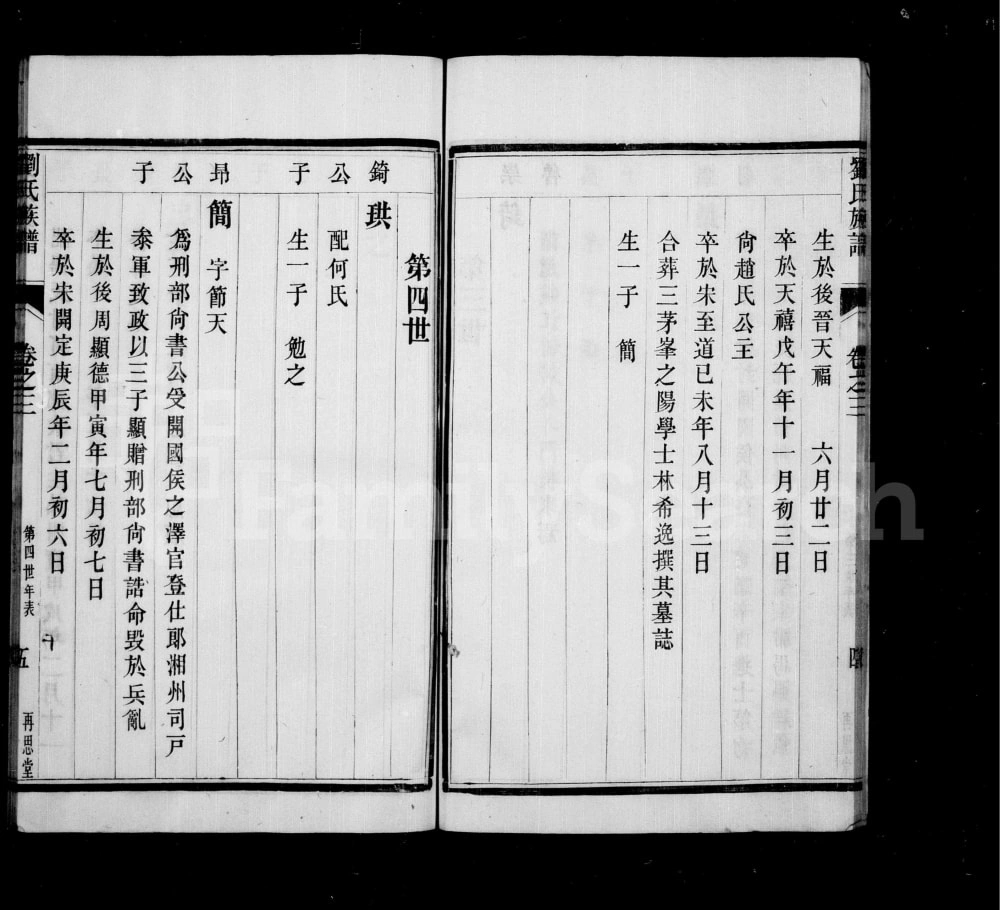 劉氏族譜 卷之三
生於後晉天福 六月廿二日
卒於天禧戊午年十一月初三日
尙趙氏公主
卒於宋至道已未年八月十三日
合葬三茅峯之陽學士林希逸撰其墓誌
生一子 簡
第四世
錡 珙
公 配何氏
子 生一子 勉之
昻 簡 字節天
公 爲刑部尙書公受開國侯之澤官登仕郞湘州司戸
子 叅軍致政以三子顯贈刑部尙書誥命毀於兵亂
生於後周顯德甲寅年七月初七日
卒於宋開定庚辰年二月初六日
劉氏族譜 卷之三 第四世年表 五 再思堂
FamilySearch